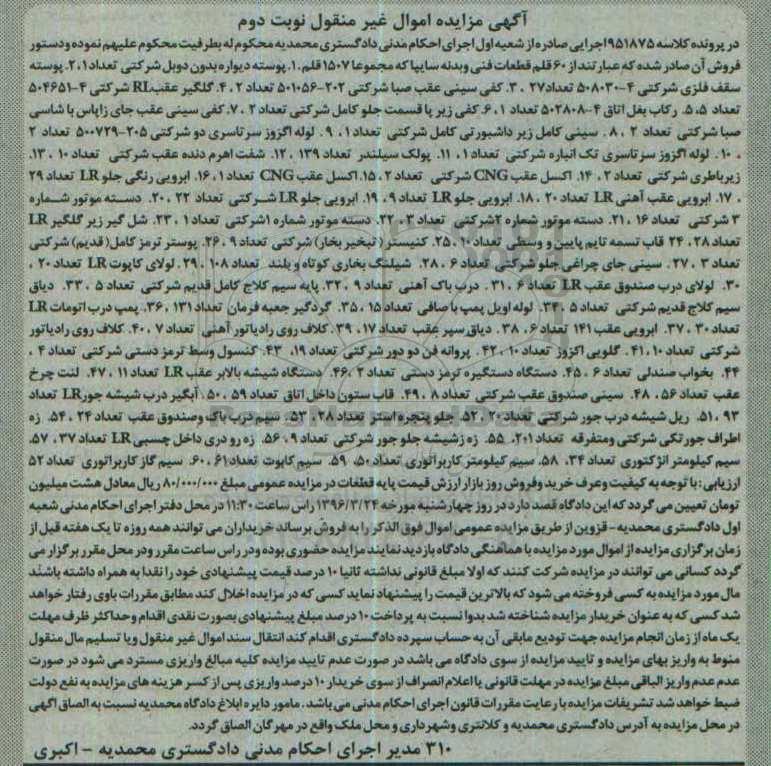 آگهی مزایده اموال غیر منقول نوبت دوم
در پرونده کلاسه ۹۵۱۸۷۵ اجرایی صادره از شعبه اول اجرای احکام مدنی دادگستری محمدیه محکوم له بطرفیت محکوم علیهم نموده و دستور
فروش آن صادر شده که عبارتند از ۶۰ قلم قطعات فنی وبدنه سایپا که مجموعا ۱۵۰۷ قلم. ۱. پوسته دیواره بدون دوبل شرکتی تعداد ۱، ۲. پوسته
سقف فلزی شرکتی ۴-۵۰۸۰۳۰ تعداد ۲۷ ، ۳. کفی سینی عقب صبا شرکتی ۲۰۲-۵۰۱۰۵۶ تعداد ۲ ، ۴. گلگیر عقب RL شرکتی ۴-۵۰۴۶۵۱
تعداد ۵، ۵. رکاب بغل اتاق ۴-۵۰۲۸۰۸ تعداد ۱ ، ۶. کفی زیر پا قسمت جلو کامل شرکتی تعداد ۲ ، ۷. کفی سینی عقب جای زاپاس با شاسی
صبا شرکتی تعداد ۲ ، ۸. سینی کامل زیر داشبورتی کامل شرکتی تعداد ۱، ۹. لوله اگزوز سرتاسری دو شرکتی ۲۰۵-۵۰۰۷۲۹ تعداد ۲
، ۱۰. لوله اگزوز سرتاسری تک انباره شرکتی تعداد ۱، ۱۱. پولک سیلندر تعداد ۱۳۹ ، ۱۲. شفت اهرم دنده عقب شرکتی تعداد ۱۰ ، ۱۳.
زیرباطری شرکتی تعداد ۲ ، ۱۴. اکسل عقب CNG شرکتی تعداد ۲ ، ۱۵. اکسل عقب CNG تعداد ۱، ۱۶. ابرویی رنگی جلو LR تعداد ۲۹
، ۱۷. ابرویی عقب آهنی LR تعداد ۲۰ ، ۱۸. ابرویی جلو LR تعداد ۹، ۱۹. ابرویی جلو LR شرکتی تعداد ۲۲ ، ۲۰. دسته موتور شماره
۳ شرکتی تعداد ۱۶ ، ۲۱. دسته موتور شماره ۲ شرکتی تعداد ۳ ، ۲۲. دسته موتور شماره ۱ شرکتی تعداد ۱ ، ۲۳. شل گیر زیر گلگیر LR
تعداد ۲۸ ، ۲۴ قاب تسمه تایم پایین و وسطی تعداد ۱۰ ، ۲۵. کنیستر (تبخیر بخار) شرکتی تعداد ۹ ، ۲۶. بوستر ترمز کامل (قدیم) شرکتی
تعداد ۳ ، ۲۷. سینی جای چراغی جلو شرکتی تعداد ۶ ، ۲۸. شیلنگ بخاری کوتاه و بلند تعداد ۱۰۸ ، ۲۹. لولای کاپوت LR تعداد ۲۰ ،
۳۰. لولای درب صندوق عقب LR تعداد ۶ ، ۳۱. درب باک آهنی تعداد ۹ ، ۳۲. پایه سیم کلاج کامل قدیم شرکتی تعداد ۵ ، ۳۳. دیاق
سیم کلاج قدیم شرکتی تعداد ۵ ، ۳۴. لوله اویل پمپ با صافی تعداد ۱۵ ، ۳۵. گردگیر جعبه فرمان تعداد ۱۳۱ ، ۳۶. پمپ درب اتومات LR
تعداد ۳۰ ، ۳۷. ابرویی عقب ۱۴۱ تعداد ۶ ، ۳۸. دیاق سپر عقب تعداد ۱۷ ، ۳۹. کلاف روی رادیاتور آهنی تعداد ۷ ، ۴۰. کلاف روی رادیاتور
شرکتی تعداد ۱۰ ، ۴۱. گلویی اگزوز تعداد ۱۰ ، ۴۲. پروانه فن دو دور شرکتی تعداد ۱۹، ۴۳. کنسول وسط ترمز دستی شرکتی تعداد ۴ ،
۴۴. بخواب صندلی تعداد ۶ ، ۴۵. دستگاه دستگیره ترمز دستی تعداد ۲ ، ۴۶. دستگاه شیشه بالابر عقب LR تعداد ۱۱ ، ۴۷. لنت چرخ
عقب تعداد ۵۶ ، ۴۸. سینی صندوق عقب شرکتی تعداد ۸ ، ۴۹. قاب ستون داخل اتاق تعداد ۵۹ ، ۵۰. آبگیر درب شیشه جور LR تعداد
۹۳ ، ۵۱. ریل شیشه درب جور شرکتی تعداد ۲۰ ، ۵۲. جلو پنجره استر تعداد ۲۸ ، ۵۳. سیم درب باک وصندوق عقب تعداد ۲۴ ، ۵۴. زه
اطراف جور تکی شرکتی ومتفرقه تعداد ۲۰۱، ۵۵. زه زشیشه جلو جور شرکتی تعداد ۹ ، ۵۶. زه رو دری داخل چسبی LR تعداد ۳۷ ، ۵۷.
سیم کیلومتر انژکتوری تعداد ۳۴، ۵۸. سیم کیلومتر کاربراتوری تعداد ۵۰، ۵۹. سیم کاپوت تعداد ۶۱ ، ۶۰. سیم گاز کاربراتوری تعداد ۵۲
ارزیابی: با توجه به کیفیت وعرف خرید وفروش روز بازار ارزش قیمت پایه قطعات در مزایده عمومی مبلغ ۸۰/۰۰۰/۰۰۰ ریال معادل هشت میلیون
تومان تعیین می گردد که این دادگاه قصد دارد در روز چهارشنبه مورخه ۱۳۹۶/۳/۲۴ راس ساعت ۱۱:۳۰ در محل دفتر اجرای احکام مدنی شعبه
اول دادگستری محمدیه - قزوین از طریق مزایده عمومی اموال فوق الذکر را به فروش برساند خریداران می توانند همه روزه تا یک هفته قبل از
زمان برگزاری مزایده از اموال مورد مزایده با هماهنگی دادگاه بازدید نمایند مزایده حضوری بوده ودر راس ساعت مقرر ودر محل مقرر برگزار می
گردد کسانی می توانند در مزایده شرکت کنند که اولا مبلغ قانونی نداشته ثانیا ۱۰ درصد قیمت پیشنهادی خود را نقدا به همراه داشته باشند
مال مورد مزایده به کسی فروخته می شود که بالاترین قیمت را پیشنهاد نماید کسی که در مزایده اخلال کند مطابق مقررات باوی رفتار خواهد
شد کسی که به عنوان خریدار مزایده شناخته شد بدوا نسبت به پرداخت ۱۰ درصد مبلغ پیشنهادی بصورت نقدی اقدام وحداکثر ظرف مهلت
یک ماه از زمان انجام مزایده جهت تودیع مابقی آن به حساب سپرده دادگستری اقدام کند انتقال سند اموال غیر منقول ویا تسلیم مال منقول
منوط به واریز بهای مزایده و تایید مزایده از سوی دادگاه می باشد در صورت عدم تایید مزایده کلیه مبالغ واریزی مسترد می شود در صورت
عدم عدم واریز الباقی مبلغ مزایده در مهلت قانونی یا اعلام انصراف از سوی خریدار ۱۰ درصد واریزی پس از کسر هزینه های مزایده به نفع دولت
ضبط خواهد شد تشریفات مزایده با رعایت مقررات قانون اجرای احکام مدنی می باشد. مامور دایره ابلاغ دادگاه محمدیه نسبت به الصاق آگهی
در محل مزایده به آدرس دادگستری محمدیه و کلانتری وشهرداری و محل ملک واقع در مهرگان الصاق گردد.
۳۱۰ مدیر اجرای احکام مدنی دادگستری محمدیه - اکبری